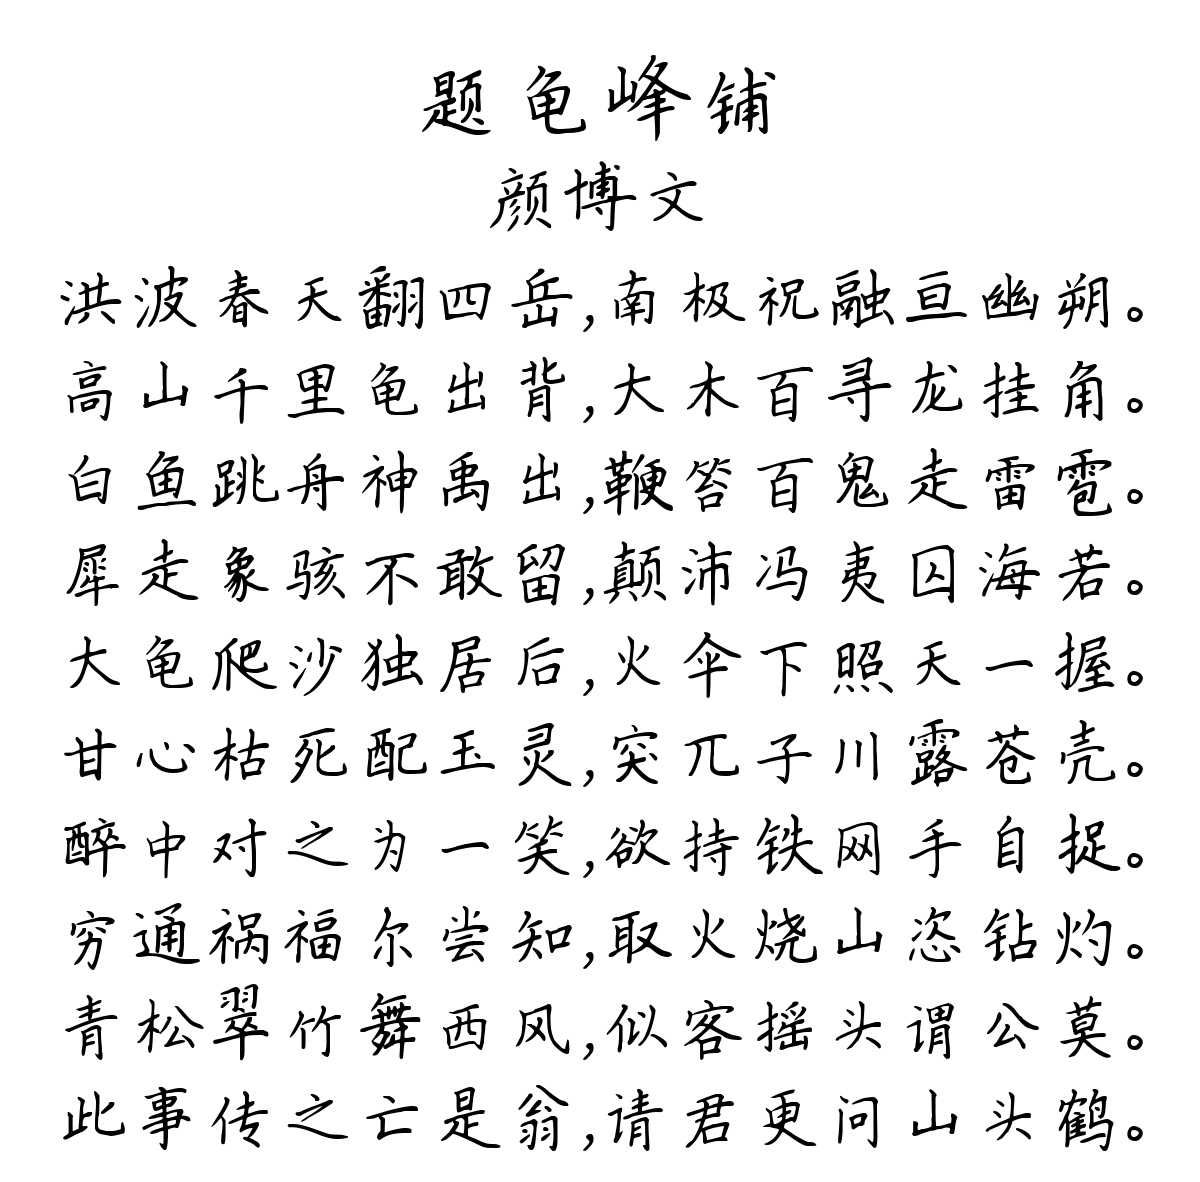 题龟峰铺
颜博文
洪波春天翻四岳,南极祝融亘幽朔。
高山千里龟出背,大木百寻龙挂角。
白鱼跳舟神禹出,鞭笞百鬼走雷雹。
犀走象骇不敢留,颠沛冯夷囚海若。
大龟爬沙独居后,火伞下照天一握。
甘心枯死配玉灵,突兀子川露苍壳。
醉中对之为一笑,欲持铁网手自捉。
穷通祸福尔尝知,取火烧山恣钻灼。
青松翠竹舞西风,似客摇头谓公莫。
此事传之亡是翁,请君更问山头鹤。